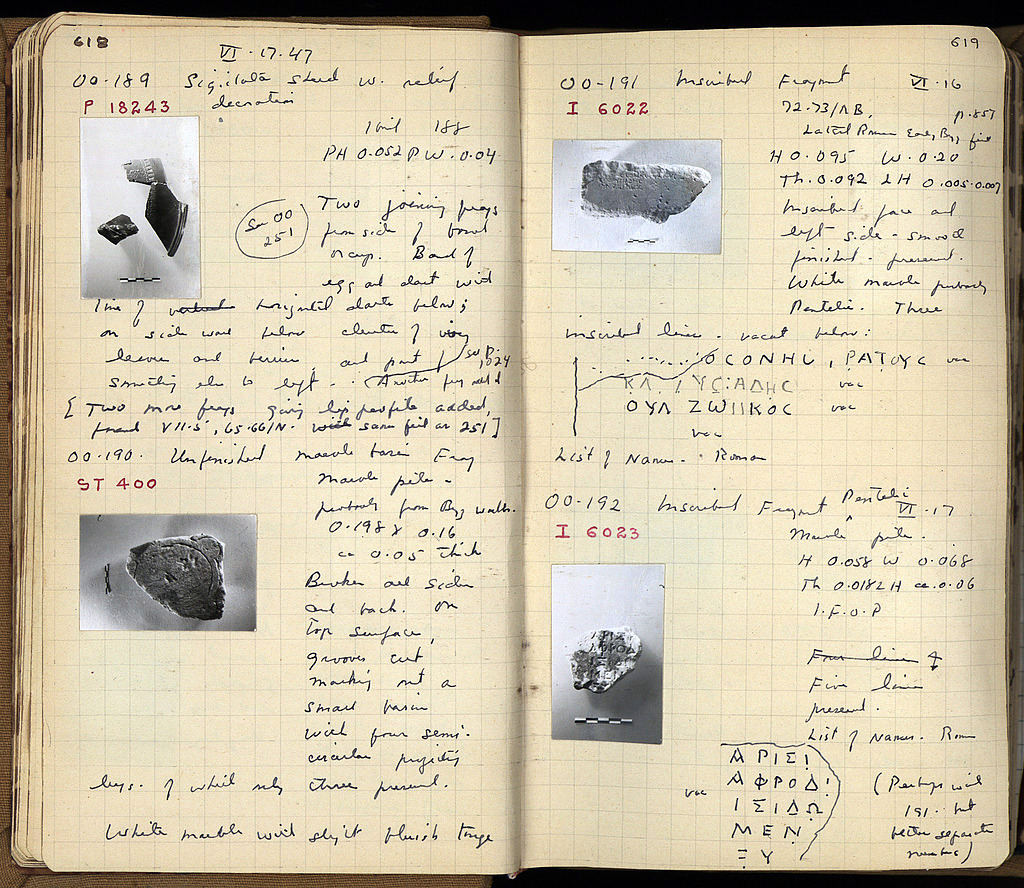 618
VI·17·47
OO-189 Sigillata sherd w. relief
decoration
P 18243
Until 188
PH 0.052 PW. 0.04
Two joining frags
from side of bowl
or cup. Band of
egg and dart with
Sa OO
251
line of vertical horizontal darts below;
on side wall below cluster of
leaves and and part of
something else to left.
see p. 1024
Another frag
[Two more frags giving lip profile added,
found VII·5, 65·66/N· with same fill as 251]
OO-190. Unfinished marble basin Frag
ST 400
Marble pile -
probably from Byz walls.
0.198 x 0.16
ca 0.05 thick
Broken all sides
and back. On
top surface,
grooves cut
marking out a
small basin
with four semi-
circular projecting
lugs. of which only three present.
White marble with slight bluish tinge
619
OO-191 Inscribed Fragment VI·16
I 6022
72.73/ΛB, p.857
Late Roman Early Byz fill
H 0.095 W. 0.20
Th. 0.092 LH 0.005-0.007
Inscribed face and
left side - smooth
finished - present.
White marble probably
Pentelic. Three
inscribed lines - vacat below:
ΟCΟΝΗC , ΡΑΤΟΥC vac
ΚΛ ΥC:ΑΔΗC vac
ΟΥΛ ΖΩΙΙΚΟC vac
vac
List of Names - Roman
OO-192 Inscribed Fragment Pentelic VI·17
I 6023
Marble pile.
H 0.058 W 0.068
Th 0.018 LH ca 0.06
I.F.O.P
Four lines
Five lines
present.
List of Names. Roman
ΑΡΙΣΙ
ΑΦΡΟΔΙ
vac ΙΣΙΔΩ
ΜΕΝ
ΞΥ
(Perhaps with
191. but
better separate
numbers)